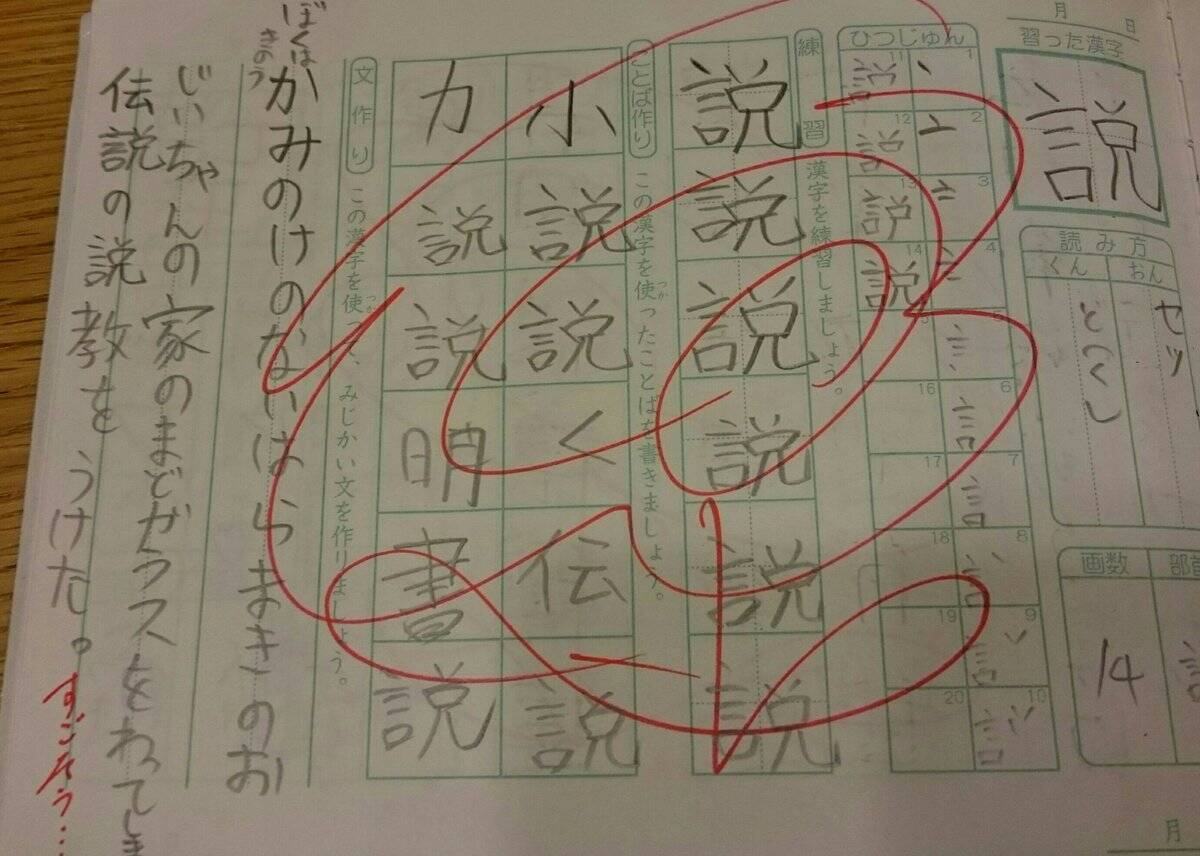 月 日
習った漢字
説
読み方
おん
セツ
くん
とく
画数
14
ひつじゅん
1
2
3
4
6
7
8
9
10
11
12
13
14
16
17
18
19
20
練習 漢字を練習しましょう。
説説説説説説
ことば作り この漢字を使ったことばを書きましょう。
つか
小説説く伝説
力説説明書説
文作り この漢字を使って、みじかい文を作りましょう。
つか
ぼくは
きのう
かみのけのないはらまきのお
じいちゃんの家のまどガラスをわってしま
伝説の説教をうけた。
すごそう…
月